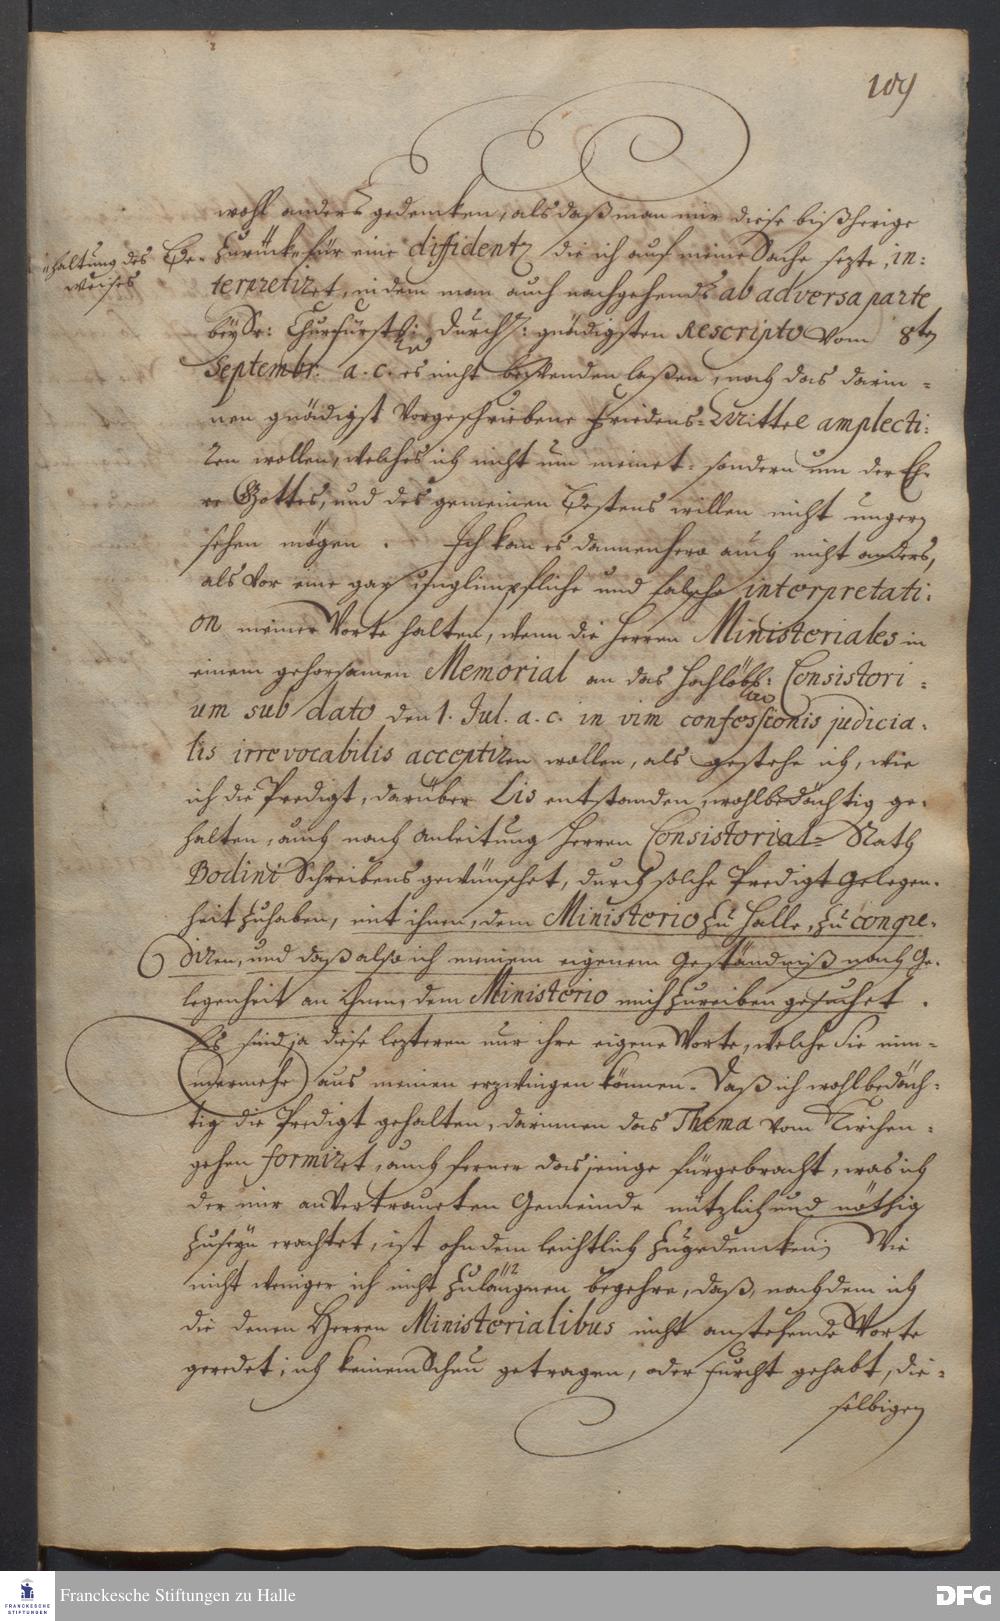 109
wohl anders gedencken, als daß man mir diese bißherige
haltung des Be-
weises
Zurücke für eine diffidentz die ich auf meine Sache sezte, in:
terpretiret, indem man auch nachgehends ab adversa parte
bey Sr: Churfürstl: Durchl: gnädigsten Rescripto vom 8ten
Septembr: a. c. es nicht bewenden laßen, noch das darin-
nen gnädigst Vorgeschriebene Friedens-Mittel amplecti:
ren wollen, welches ich nicht um meinet- sondern um der Eh-
re Gottes, und des gemeinen Bestens willen nicht ungern
sehen mögen. Ich kan es dannenhero auch nicht anders,
als vor eine gar unglimpfliche und falsche interpretati:
on meiner Worte halten, wenn die Herren Ministeriales in
einem gehorsamen Memorial an das Hochlöbl: Consistori-
um sub dato den 1. Jul. a. c. in vim confessionis judicia-
lis irrevocabilis acceptiren wollen, als gestehe ich, wie
ich die Predigt, darüber Lis entstanden, wohlbedächtig ge-
halten, auch nach Anleitung Herren Consistorial-Rath
Bodini Schreibens gewünschet, durch solche Predigt Gelegen-
heit zuhaben, mit ihnen, dem Ministerio zu Halle, zu congre-
diren, und daß also ich meinem eigenem Geständniß nach Ge-
legenheit an ihnen, dem Ministerio mich zureiben gesuchet.
Es sind ja diese lezteren nur ihre eigene Worte, welche Sie nim-
mermehr aus meinen erzwingen können. Daß ich wohlbedäch-
tig die Predigt gehalten, darinnen das Thema vom Kirchen-
gehen formiret, auch ferner dasjenige fürgebracht, was ich
der mir anvertraueten Gemeinde nützlich und nöthig
zuseyn erachtet, ist ohndem leichtlich zugedencken; Wie
nicht weniger ich nicht zuläugnen begehre, daß, nachdem ich
die denen Herren Ministerialibus nicht anstehende Worte
geredet, ich keinen Scheu getragen, oder Furcht gehabt, die-
selbigen
Franckesche Stiftungen zu Halle
FRANCKESCHE
STIFTUNGEN
DFG